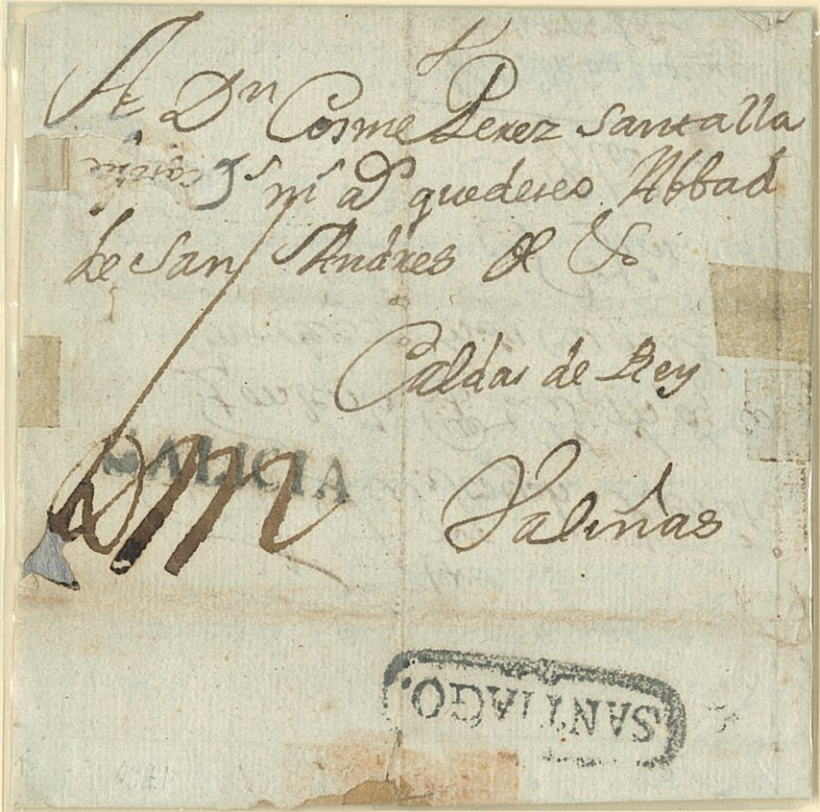 A Dn Cosme Perez Santalla
gs ms as quedeseo Abbad
de San Andres de
Caldas de Rey
GALICIA
Saliñas
SANTIAGO.